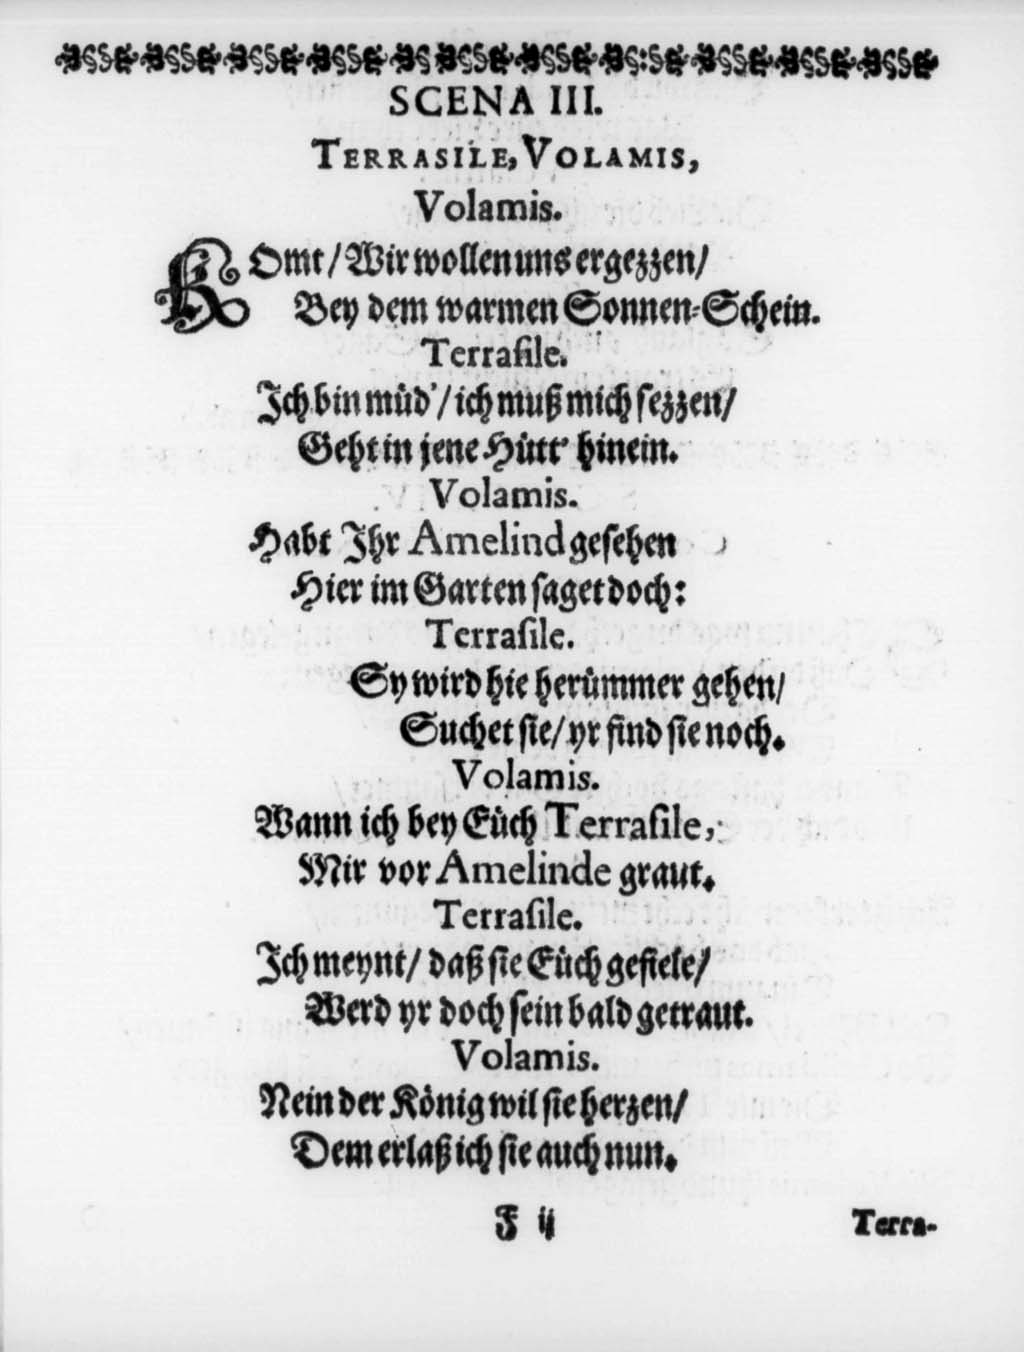 SCENA III.
TERRASILE, VOLAMIS,
Volamis.
KOmt / Wir wollen uns ergezzen /
Bey dem warmen Sonnen-Schein.
Terraſile.
Ich bin müd' / ich muß mich ſezzen /
Geht in jene Hütt' hinein.
Volamis.
Habt Ihr Amelind geſehen
Hier im Garten ſaget doch:
Terraſile.
Sy wird hie herümmer gehen /
Suchet ſie / yr find ſie noch.
Volamis.
Wann ich bey Eüch Terraſile,
Mir vor Amelinde graut.
Terraſile.
Ich meynt / daß ſie Eüch gefiele /
Werd yr doch ſein bald getraut.
Volamis.
Nein der König wil ſie herzen /
Dem erlaß ich ſie auch nun.
F ij
Terra-